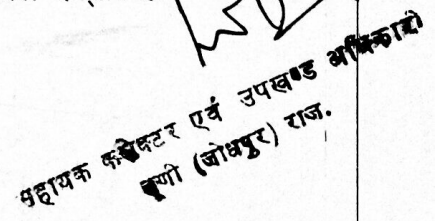 सहायक कलेक्टर एवं उपखण्ड अधिकारी
लूणी (जोधपुर) राज.